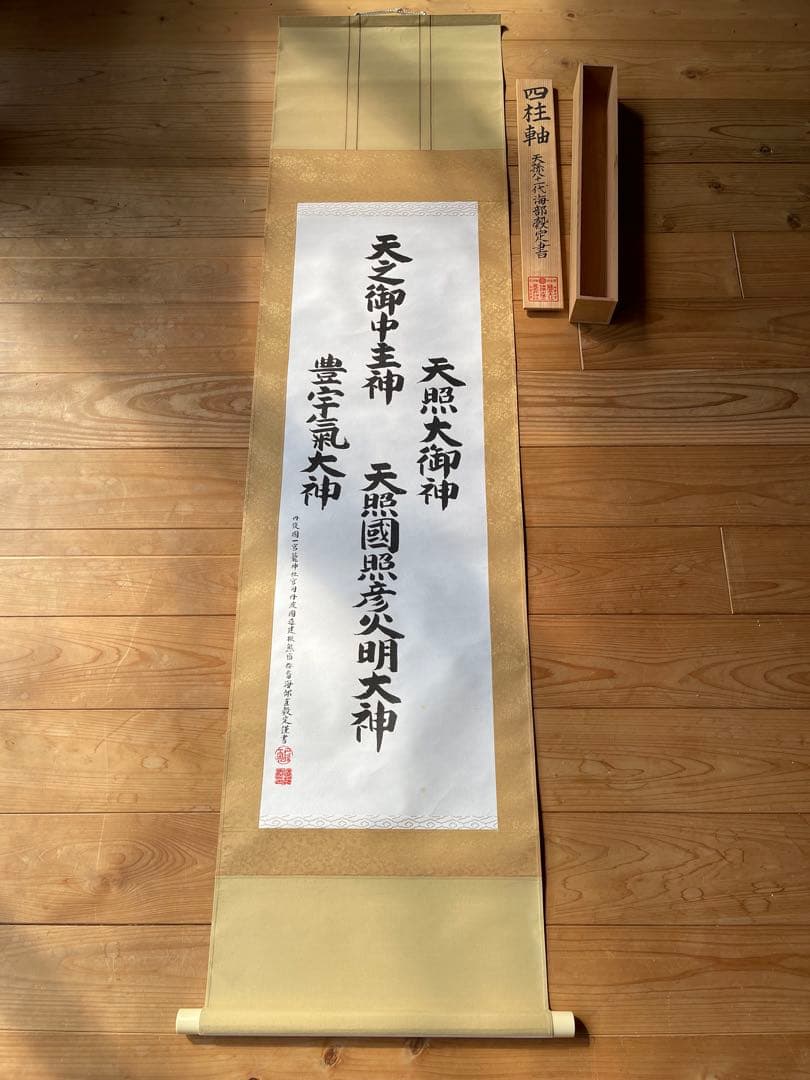 四柱軸
天孫八十一代海部穀定書
天之御中主神
天照大御神
豊宇氣大神
天照國照彦火明大神
丹後國一宮籠神社宮司丹波國造建振熊宿祢裔海部直穀定謹書